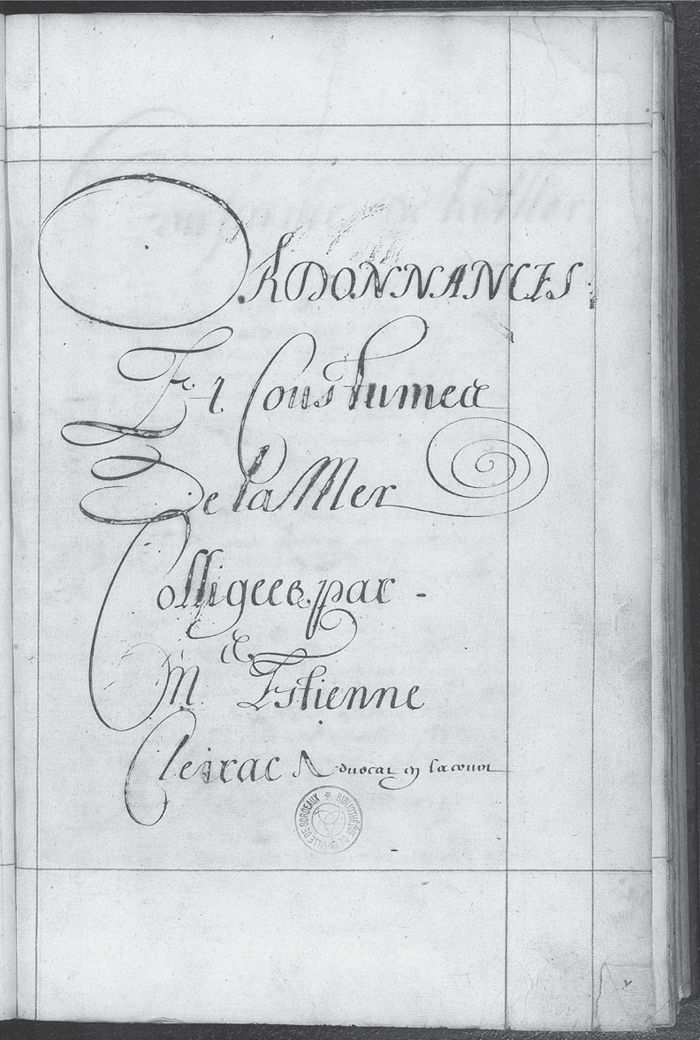 ORDONNANCES
Et Coustumes
De la Mer
Colligees par -
M.e Estienne
Cleirac Advocat en la cour
BIBLIOTHÈQUE DE LA VILLE DE BORDEAUX